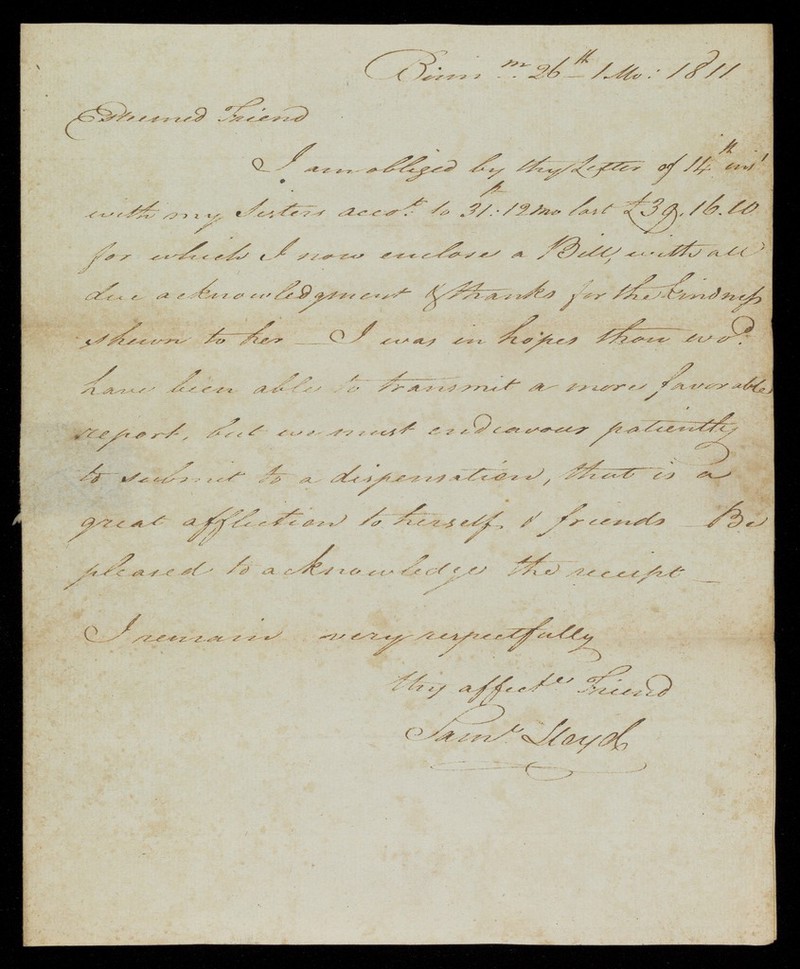 Birm.m 26th 1 Mo: 1811
Esteemed Friend
I am obliged by thy Letter of 14th inst
with my Sisters accot. to 31st: 12 mo last £39.16.10
for which I now enclose a Bill, with all
due acknowledgment & thanks for the kindness
shewn to her – I was in hopes thou wod.
have been able to transmit a more favorable
report, but we must endeavour patiently
to submit to a dispensation, that is a
great affliction to herself & friends – Be
pleased to acknowledge the receipt –
I remain very respectfully
thy affecte Friend
Saml. Lloyd